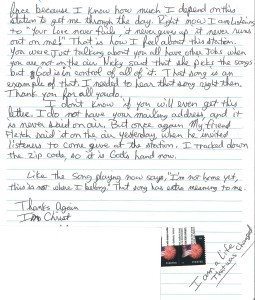 face because I know how much I depend on this
station to get me through the day. Right now I am listening
to "Your love never fails, it never gives up, it never runs
out on me". That is how I feel about this station.
You were just talking about you all have other jobs when
you are not on the air. Nicky said that she picks the songs
but God is in control of all of it. That song is an
example of that. I needed to hear that song right then.
Thank you for all you do.
I don't know if you will even get this
letter. I do not have your mailing address, and it
is never said on air. But once again my friend
Fletch said it on the air yesterday when he invited
listeners to come give at the station. I tracked down
the zip code, so it is God's hand now.
Like the song playing now says, "I'm not home yet,
this is not where I belong." That song has extra meaning to me.
Thanks Again
In Christ
I am a Life
That was Changed